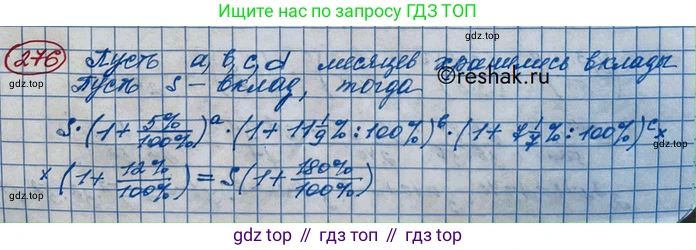 Ищите нас по запросу ГДЗ ТОП
276 Пусть a, b, c, d месяцев хранились вклады
©reshak.ru
Пусть S – вклад, тогда
S·(1+5%/100%)^a·(1+11 1/9%:100%)^b·(1+7 1/7%:100%)^c ×
×(1+12%/100%)=S(1+180%/100%)
gdz.top
gdz.top
gdz.top
gdz.top
gdz.top
gdz.top
gdz.top // гдз.топ // гдз топ